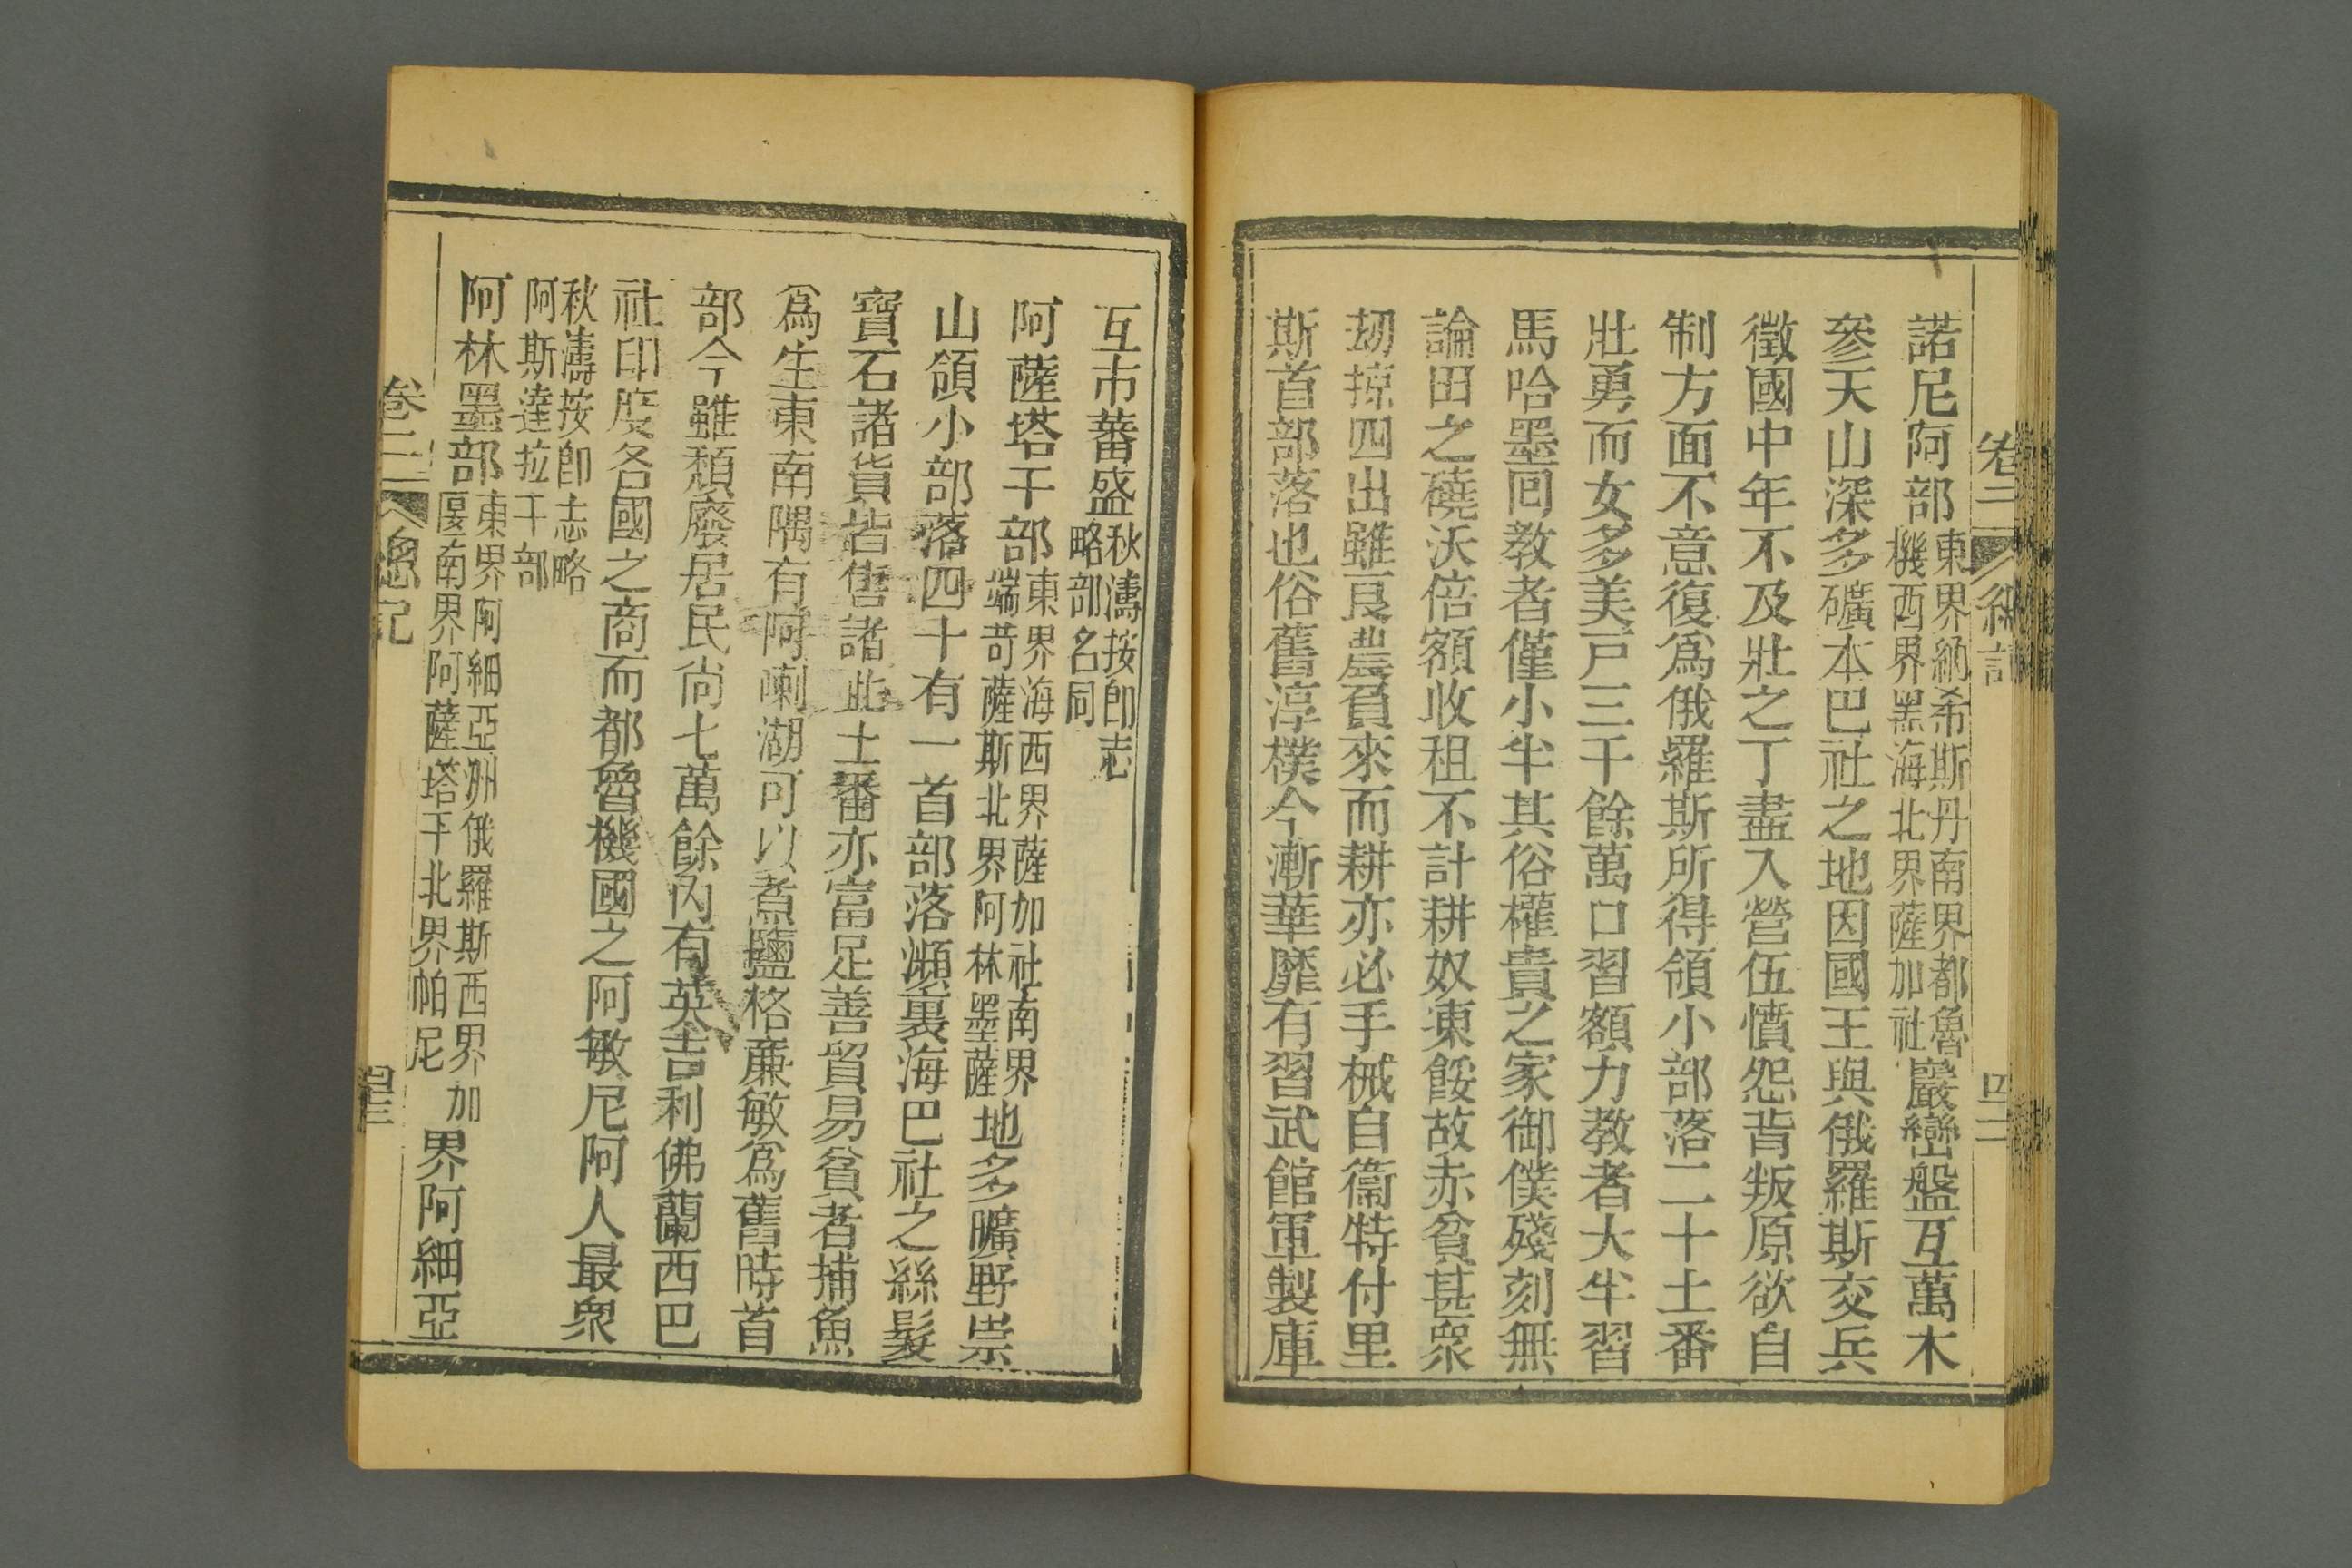 卷二 總記 四二
諾尼阿部東界納希斯丹南界都魯機西界黑海北界薩加社巖巒盤互萬木
參天山深多礦本巴社之地因國王與俄羅斯交兵
徵國中年不及壯之丁盡入營伍憤怨背叛原欲自
制方面不意復爲俄羅斯所得領小部落二十土番
壯勇而女多美戸三千餘萬口習額力教者大半習
馬哈墨回教者僅小半其俗權貴之家御僕殘刻無
論田之磽沃倍額收租不計耕奴凍餒故赤貧甚衆
刼掠四出雖良農負來而耕亦必手械自衞特付里
斯首部落也俗舊淳樸今漸華靡有習武館軍製庫
互市蕃盛秋濤按卽志略部名同
阿薩塔干部東界海西界薩加社南界端苛薩斯北界阿林墨薩地多曠野崇
山領小部落四十有一首部落瀕裏海巴社之絲髮
寶石諸貨皆售諸此土番亦富足善貿易貧者捕魚
爲生東南隅有阿喇湖可以煮鹽格廉敏爲舊時首
部今雖頹廢居民尚七萬餘內有英吉利佛蘭西巴
社印度各國之商而都魯機國之阿敏尼阿人最衆
秋濤按卽志略阿斯達拉干部
阿林墨部東界阿細亞洲俄羅斯西界加匽南界阿薩塔干北界帕尼界阿細亞
卷二 總記 四三